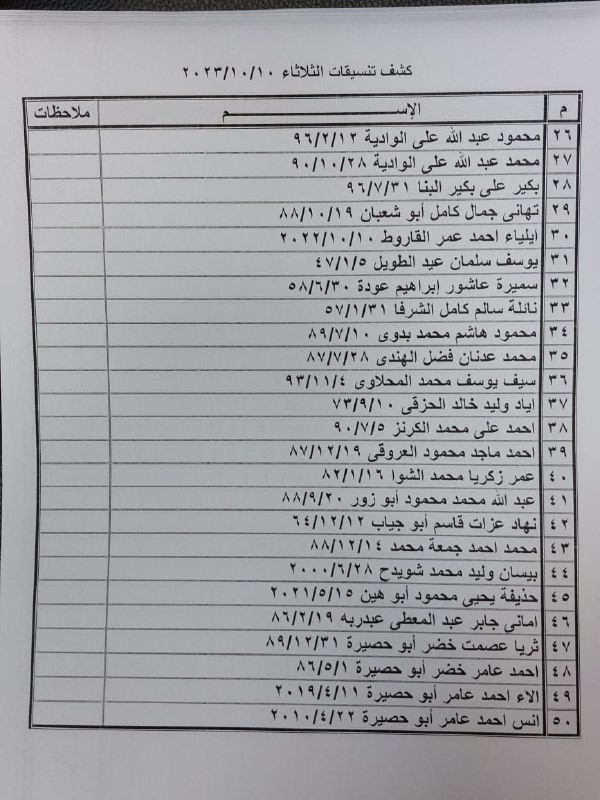 كشف تنسيقات الثلاثاء ٢٠٢٣/١٠/١٠
م الإســـم ملاحظات
٢٦ محمود عبد الله على الوادية ٩٦/٢/١٢
٢٧ محمد عبد الله على الوادية ٩٠/١٠/٢٨
٢٨ بكير على بكير البنا ٩٦/٧/٣١
٢٩ تهانى جمال كامل أبو شعبان ٨٨/١٠/١٩
٣٠ ايلياء احمد عمر القاروط ٢٠٢٢/١٠/١٠
٣١ يوسف سلمان عيد الطويل ٤٧/١/٥
٣٢ سميرة عاشور إبراهيم عودة ٥٨/٦/٣٠
٣٣ نائلة سالم كامل الشرفا ٥٧/١/٣١
٣٤ محمود هاشم محمد بدوى ٨٩/٧/١٠
٣٥ محمد عدنان فضل الهندى ٨٧/٧/٢٨
٣٦ سيف يوسف محمد المحلاوى ٩٣/١١/٤
٣٧ اياد وليد خالد الحزقى ٧٣/٩/١٠
٣٨ احمد على محمد الكرنز ٩٠/٧/٥
٣٩ احمد ماجد محمود العروقى ٨٧/١٢/١٩
٤٠ عمر زكريا محمد الشوا ٨٢/١/١٦
٤١ عبد الله محمد محمود أبو زور ٨٨/٩/٢٠
٤٢ نهاد عزات قاسم أبو جياب ٦٤/١٢/١٢
٤٣ محمد احمد جمعة محمد ٨٨/١٢/١٤
٤٤ بيسان وليد محمد شويدح ٢٠٠٠/٦/٢٨
٤٥ حذيفة يحيى محمود أبو هين ٢٠٢١/٥/١٥
٤٦ امانى جابر عبد المعطى عبدربه ٨٦/٢/١٩
٤٧ ثريا عصمت خضر أبو حصيرة ٨٩/١٢/٣١
٤٨ احمد عامر خضر أبو حصيرة ٨٦/٥/١
٤٩ الاء احمد عامر أبو حصيرة ٢٠١٩/٤/١١
٥٠ انس احمد عامر أبو حصيرة ٢٠١٠/٤/٢٢